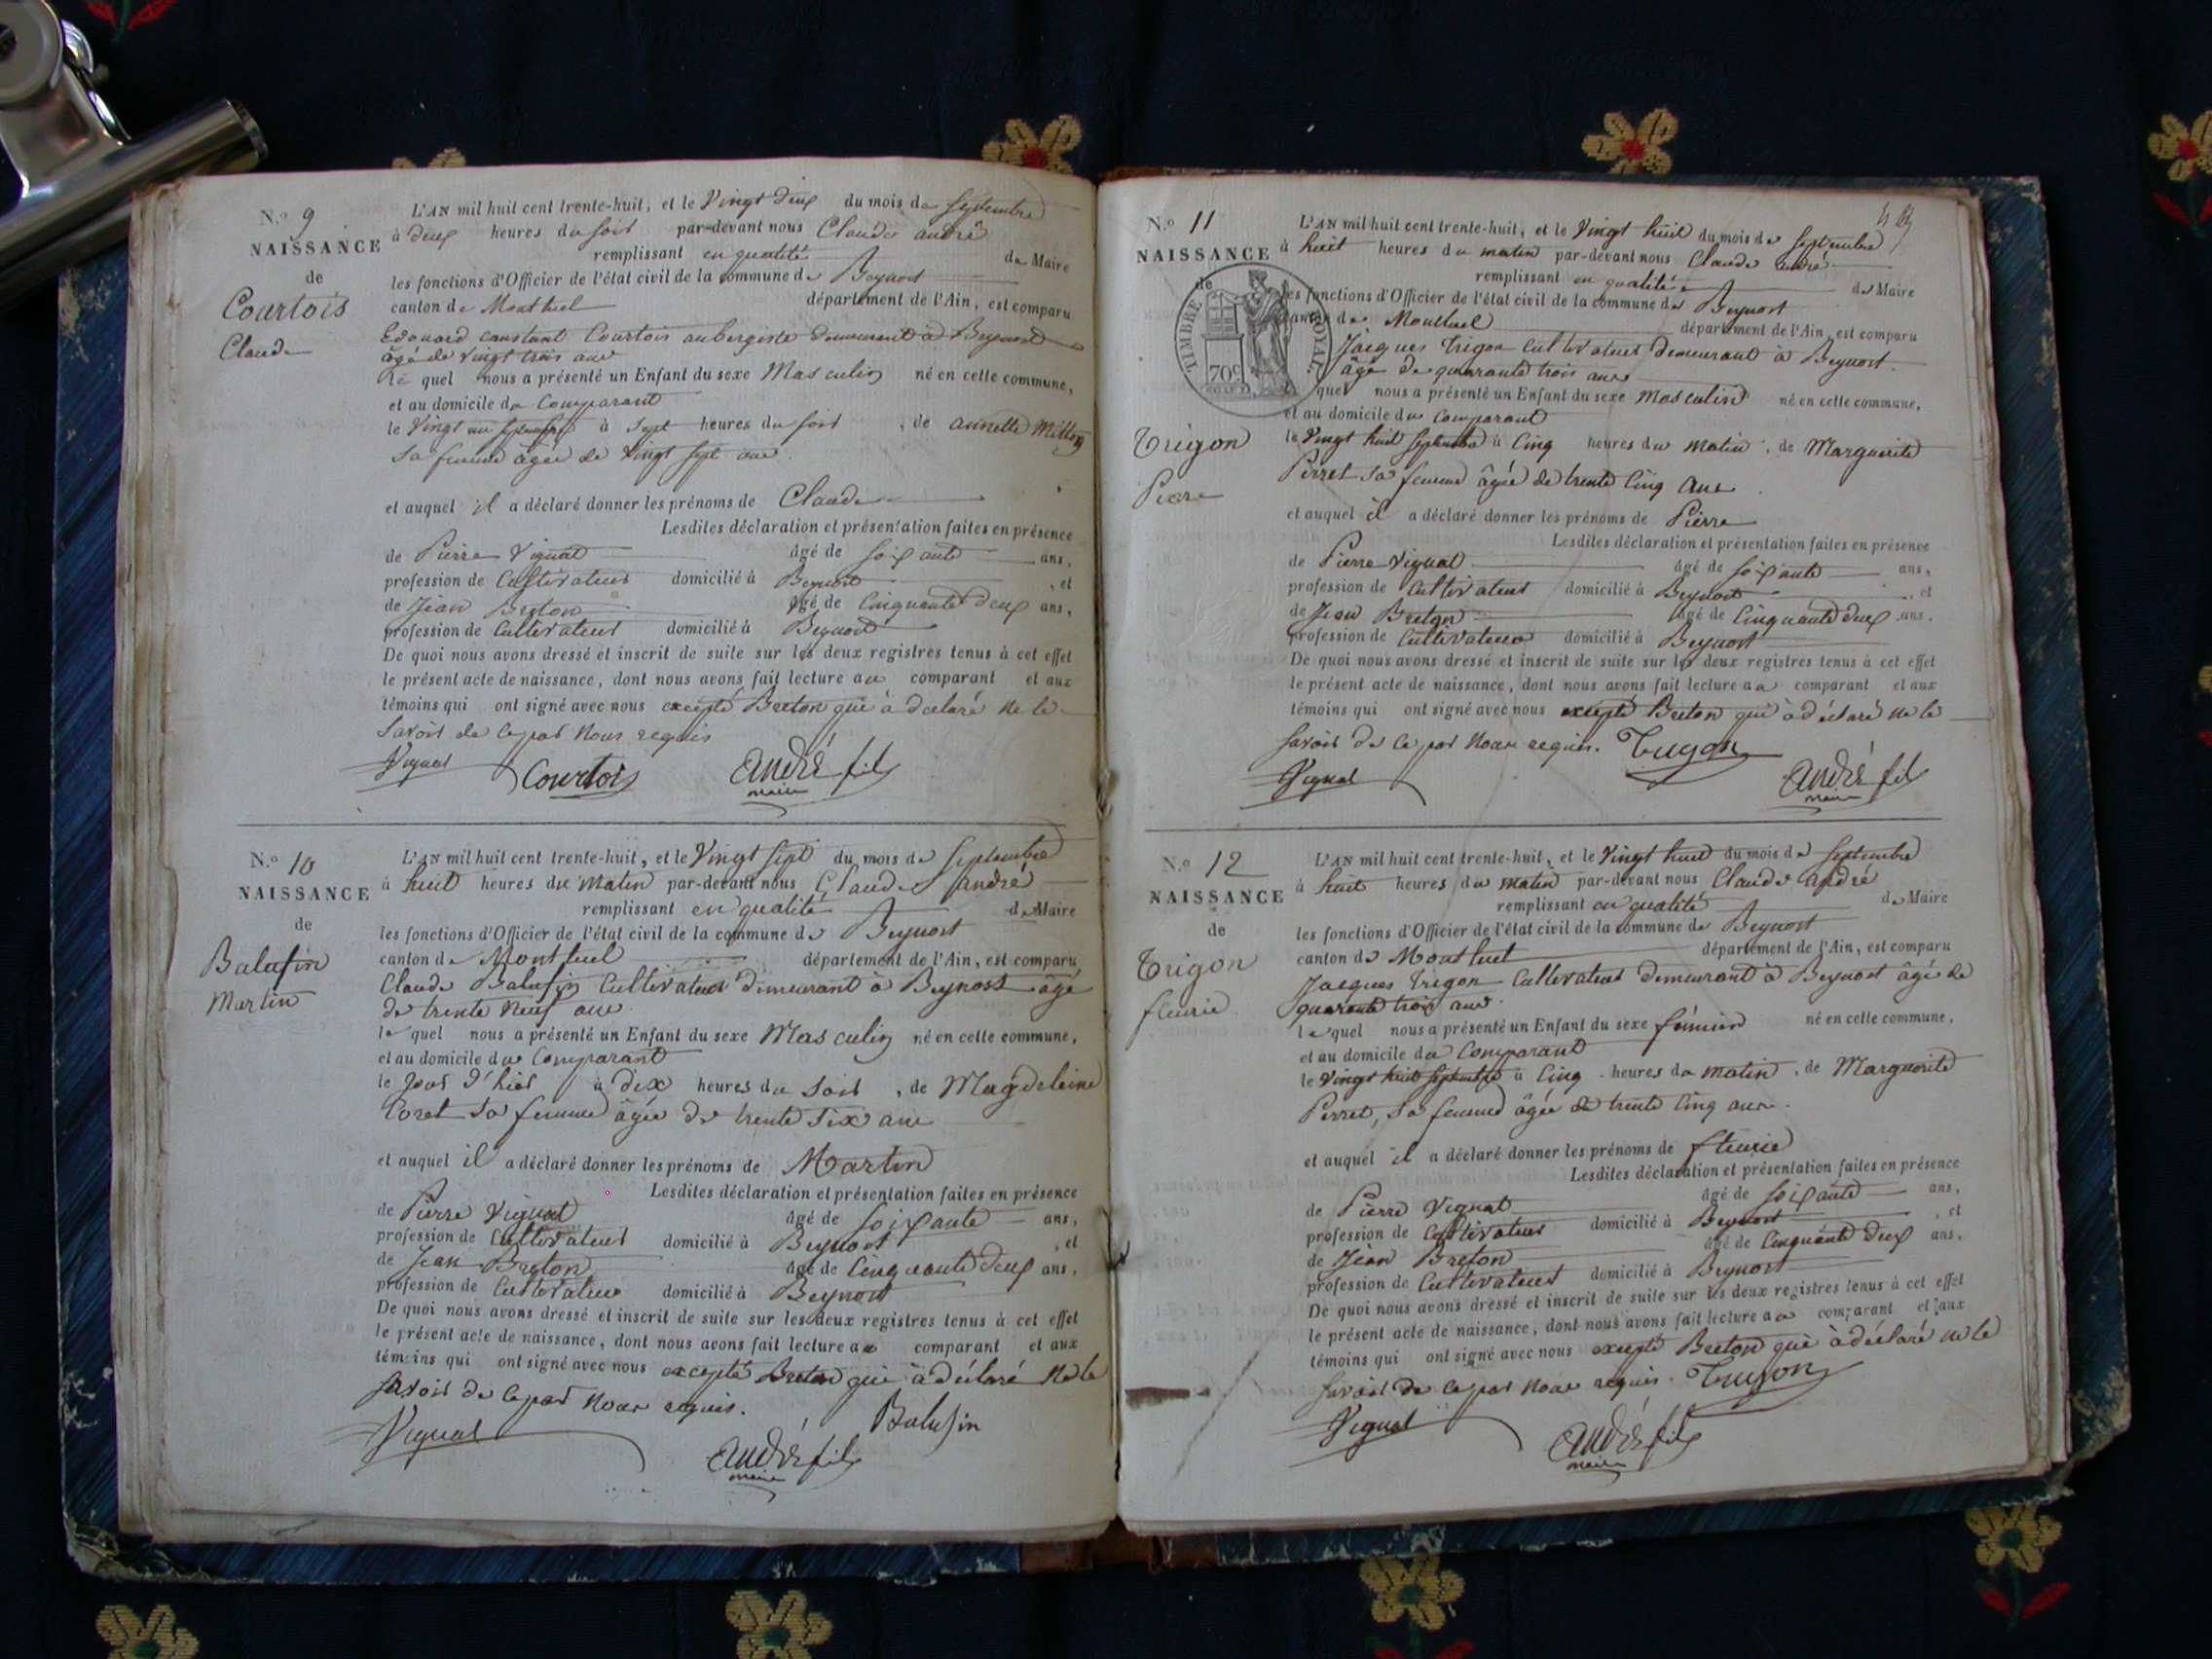 N.o 9
NAISSANCE
de
Courtois
Claude
L'AN mil huit cent trente-huit, et le Vingt deux du mois de Septembre
à deux heures du soir par-devant nous Claude andré
remplissant en qualité de Maire
les fonctions d'Officier de l'état civil de la commune de Beynost
canton de Montluel département de l'Ain, est comparu
Edouard constant Courtois aubergiste demeurant à Beynost
âgé de vingt trois ans
le quel nous a présenté un Enfant du sexe Masculin né en cette commune,
et au domicile du Comparant
le Vingt un septembre à sept heures du soir, de annette Millon
sa femme âgée de vingt sept ans
et auquel il a déclaré donner les prénoms de Claude
Lesdites déclaration et présentation faites en présence
de Pierre Vignat âgé de soixante ans,
profession de Cultivateur domicilié à Beynost, et
de Jean Breton âgé de Cinquante deux ans,
profession de Cultivateur domicilié à Beynost
De quoi nous avons dressé et inscrit de suite sur les deux registres tenus à cet effet
le présent acte de naissance, dont nous avons fait lecture au comparant et aux
témoins qui ont signé avec nous excepté Breton qui à déclaré ne le
savoir de ce par nous requis
Vignat Courtois André fils
maire
N.o 10
NAISSANCE
de
Balufin
Martin
L'AN mil huit cent trente-huit, et le Vingt sept du mois de Septembre
à huit heures du matin par-devant nous Claude andré
remplissant en qualité de Maire
les fonctions d'Officier de l'état civil de la commune de Beynost
canton de Montluel département de l'Ain, est comparu
Claude Balufin Cultivateur demeurant à Beynost âgé
de trente neuf ans
le quel nous a présenté un Enfant du sexe Masculin né en cette commune,
et au domicile du Comparant
le jour d'hier à dix heures du soir, de Magdeleine
Coret sa femme âgée de trente six ans
et auquel il a déclaré donner les prénoms de Martin
Lesdites déclaration et présentation faites en présence
de Pierre Vignat âgé de soixante ans,
profession de Cultivateur domicilié à Beynost, et
de Jean Breton âgé de Cinquante deux ans,
profession de Cultivateur domicilié à Beynost
De quoi nous avons dressé et inscrit de suite sur les deux registres tenus à cet effet
le présent acte de naissance, dont nous avons fait lecture au comparant et aux
témoins qui ont signé avec nous excepté Breton qui à déclaré ne le
savoir de ce par nous requis.
Vignat André fils Balufin
maire
N.o 11
NAISSANCE
de
TIMBRE ROYAL
70c
Trigon
Piere
L'AN mil huit cent trente-huit, et le Vingt huit du mois de Septembre
à huit heures du matin par-devant nous Claude andré
remplissant en qualité de Maire
les fonctions d'Officier de l'état civil de la commune de Beynost
canton de Montluel département de l'Ain, est comparu
Jacques Trigon Cultivateur demeurant à Beynost
âgé de quarante trois ans
quel nous a présenté un Enfant du sexe Masculin né en cette commune,
et au domicile du Comparant
le Vingt huit septembre à Cinq heures du matin, de Marguerite
Perret sa femme âgée de trente Cinq ans
et auquel il a déclaré donner les prénoms de Pierre
Lesdites déclaration et présentation faites en présence
de Pierre Vignat âgé de soixante ans,
profession de Cultivateur domicilié à Beynost, et
de Jean Breton âgé de Cinquante deux ans.
profession de Cultivateur domicilié à Beynost
De quoi nous avons dressé et inscrit de suite sur les deux registres tenus à cet effet
le présent acte de naissance, dont nous avons fait lecture au comparant et aux
témoins qui ont signé avec nous excepté Breton qui à déclaré ne le
savoir de ce par nous requis. Trigon
Vignat André fils
maire
N.o 12
NAISSANCE
de
Trigon
fleurie
L'AN mil huit cent trente-huit, et le Vingt huit du mois de Septembre
à huit heures du matin par-devant nous Claude andré
remplissant en qualité de Maire
les fonctions d'Officier de l'état civil de la commune de Beynost
canton de Montluel département de l'Ain, est comparu
Jacques Trigon Cultivateur demeurant à Beynost âgé de
quarante trois ans
le quel nous a présenté un Enfant du sexe féminin né en cette commune,
et au domicile du Comparant
le Vingt huit septembre à Cinq heures du matin, de Marguerite
Perret, sa femme âgée de trente Cinq ans.
et auquel il a déclaré donner les prénoms de fleurie
Lesdites déclaration et présentation faites en présence
de Pierre Vignat âgé de soixante ans,
profession de Cultivateur domicilié à Beynost, et
de Jean Breton âgé de Cinquante deux ans,
profession de Cultivateur domicilié à Beynost
De quoi nous avons dressé et inscrit de suite sur les deux registres tenus à cet effet
le présent acte de naissance, dont nous avons fait lecture au comparant et aux
témoins qui ont signé avec nous excepté Breton qui à déclaré ne le
savoir de ce par nous requis. Trigon
Vignat André fils
maire